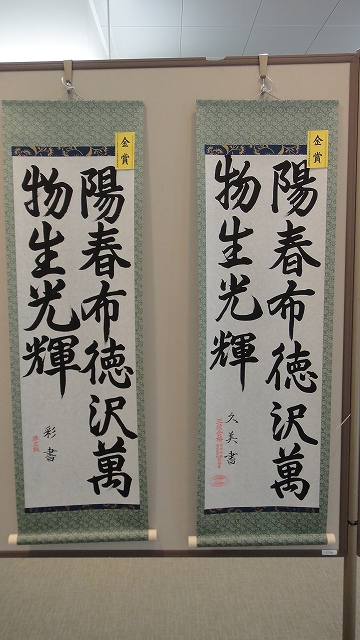 金賞
陽春布徳沢萬
物生光輝
久美書
金賞
陽春布徳沢萬
物生光輝
彩書